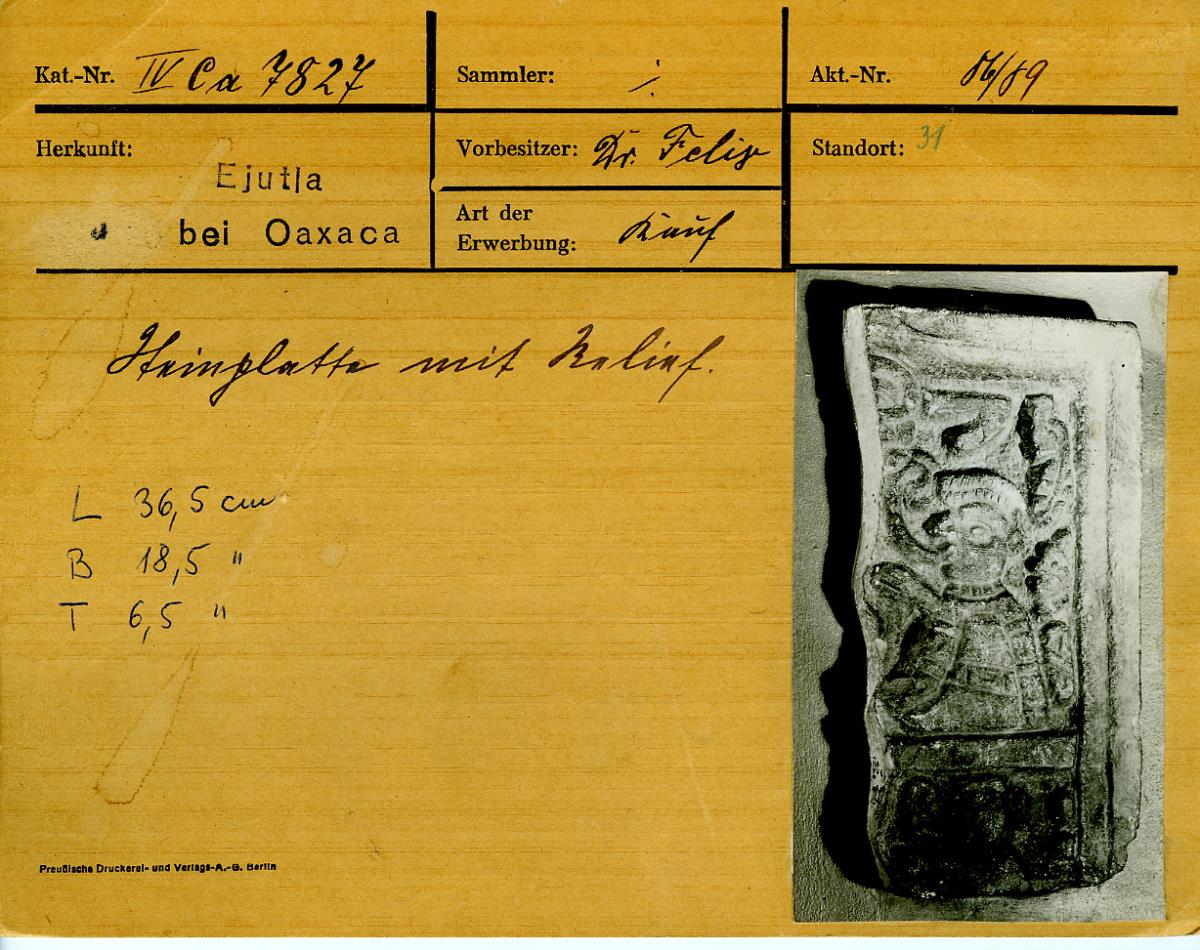 Kat.-Nr. IV Ca 7827
Sammler: i.
Akt.-Nr. 86/89
Herkunft:
Ejutla
bei Oaxaca
Vorbesitzer: Dr. Felix
Art der
Erwerbung: Kauf
Standort: 31
Steinplatte mit Relief.
L 36,5 cm
B 18,5 "
T 6,5 "
Preußische Druckerei- und Verlags-A.-G. Berlin